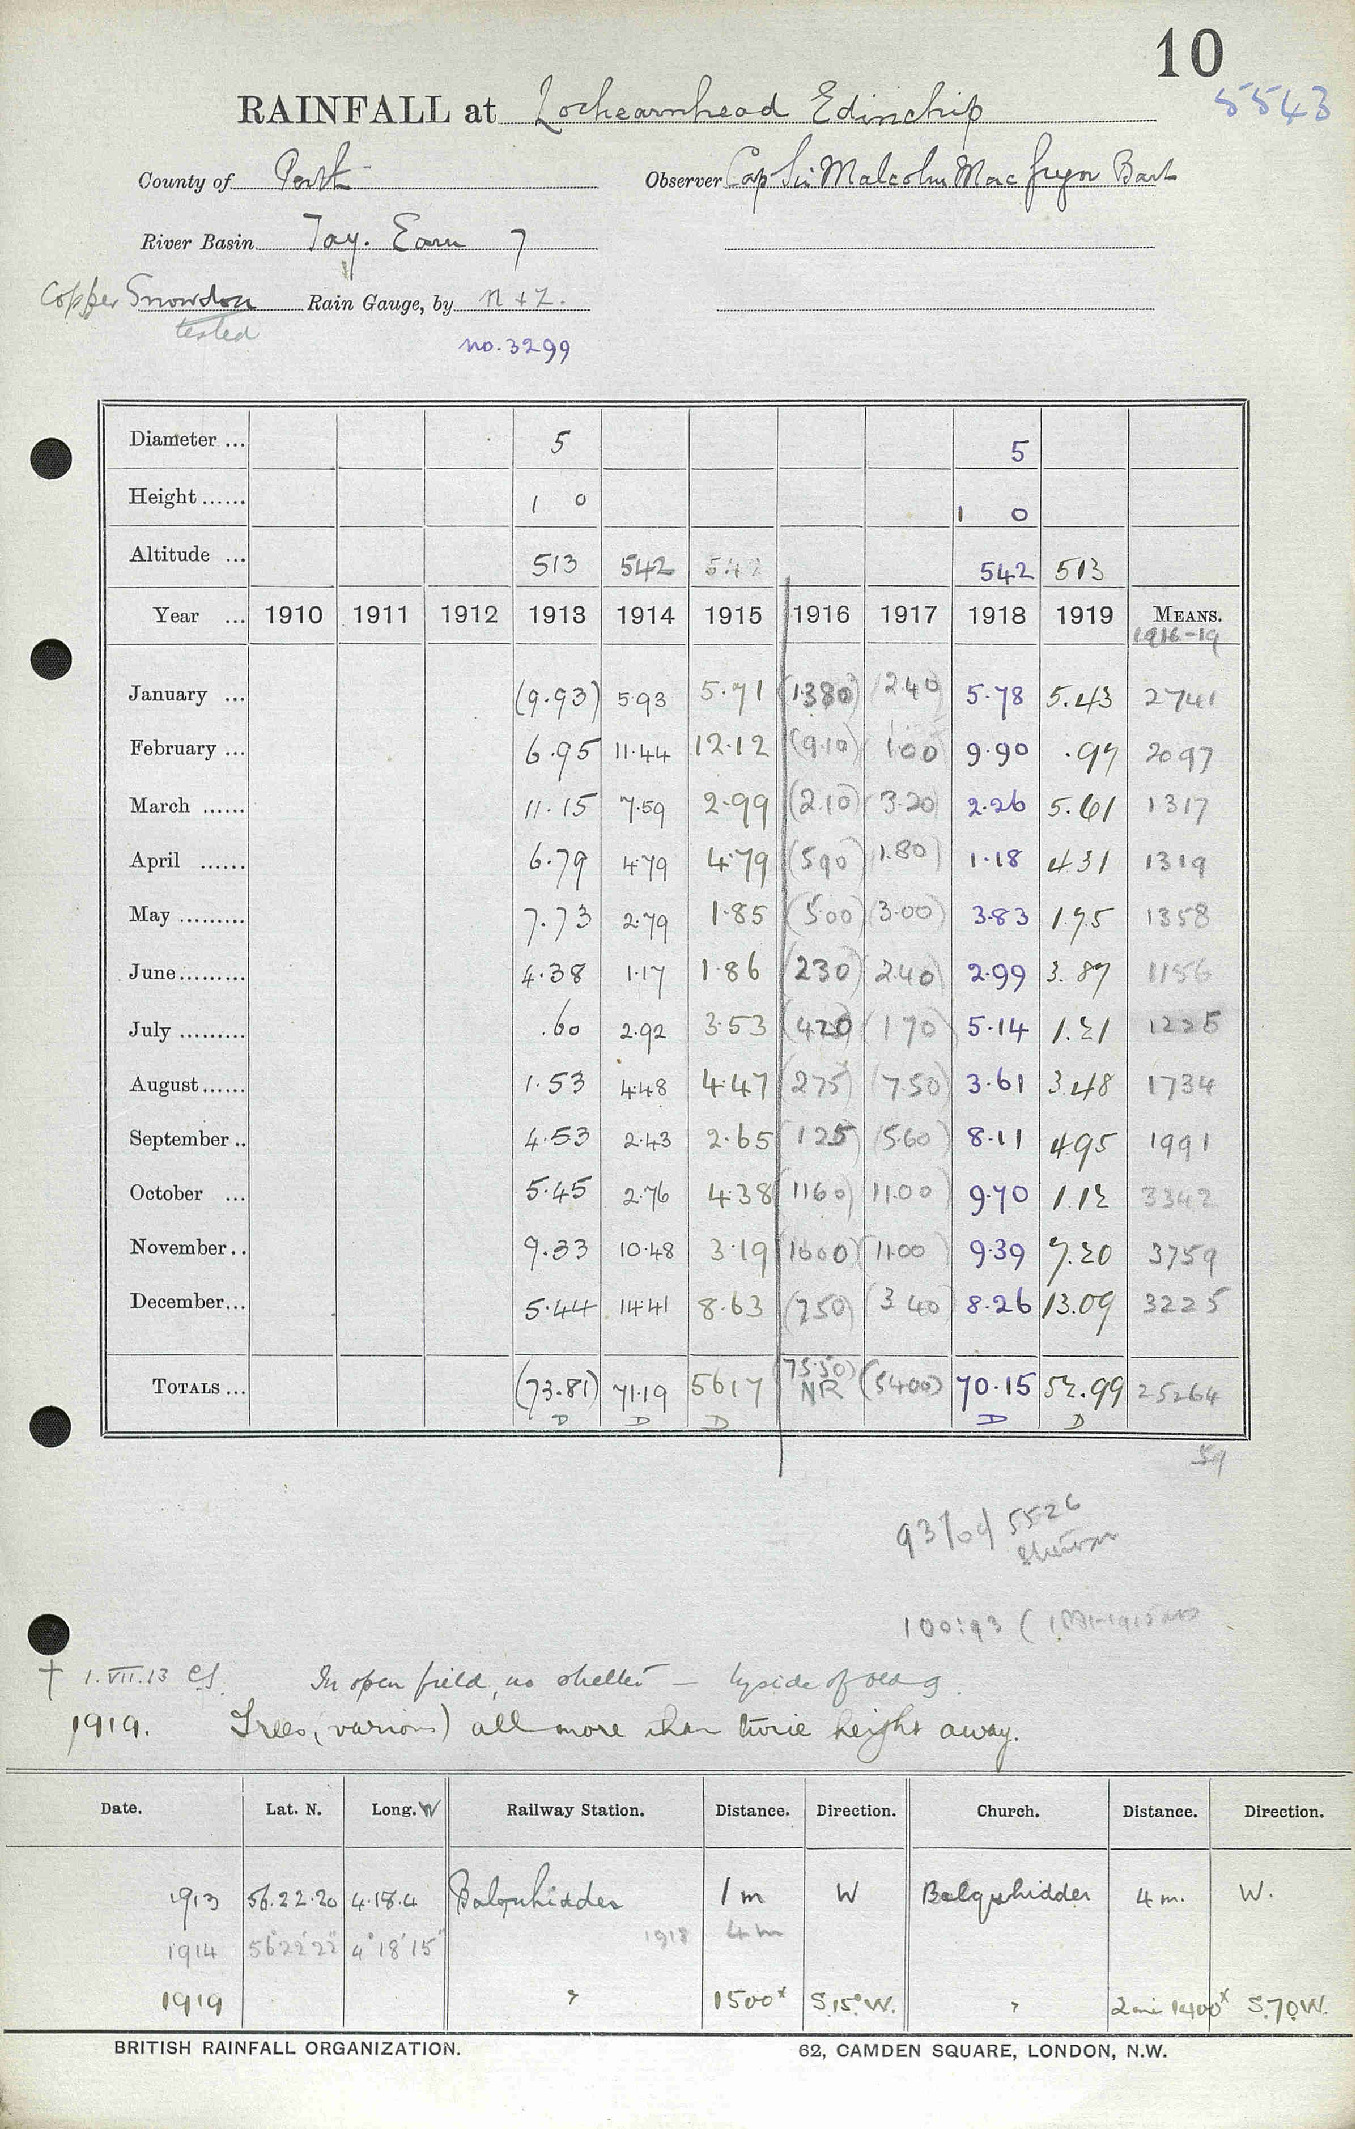 10
RAINFALL at Lochearnhead Edinchip 5543
County of Perth Observer Cap Sir Malcolm MacGregor Bart
River Basin Tay. Earn 7
Copper Snowdon Rain Gauge, by N + Z.
tested no. 3299
Diameter ... 5 5
Height ...... 1 0 1 0
Altitude ... 513 542 542 542 513
Year ... 1910 1911 1912 1913 1914 1915 1916 1917 1918 1919 MEANS.
1916-19
January ... (9.93) 5.93 5.71 (1380) (240) 5.78 5.43 2741
February ... 6.95 11.44 12.12 (9.10) 1.00 9.90 .99 2097
March ...... 11.15 7.59 2.99 (2.10) 3.20 2.26 5.61 1317
April ...... 6.79 4.79 4.79 (590) 1.80) 1.18 4.31 1319
May ......... 7.73 2.79 1.85 (5.00) (3.00) 3.83 1.75 1358
June......... 4.38 1.17 1.86 (230) 240) 2.99 3.87 1156
July ......... .60 2.92 3.53 (420) (170) 5.14 1.21 1225
August...... 1.53 4.48 4.47 (275) (7.50) 3.61 3.48 1734
September .. 4.53 2.43 2.65 (125) (560) 8.11 4.95 1991
October ... 5.45 2.76 4.38 (1160) 11.00) 9.70 1.12 3342
November .. 9.33 10.48 3.19 (1600) (11.00) 9.39 7.20 3759
December... 5.44 14.41 8.63 (750) (3 40) 8.26 13.09 3225
(75.50)
TOTALS ... (73.81) 71.19 56.17 NR (5400) 70.15 52.99 25264
D D D D D
59
93% of 5526
100:93 (1881-1915
† 1. VII. 13 In open field, no shelter —
1919. Trees, (various) all more than twice height away.
Date. Lat. N. Long. W Railway Station. Distance. Direction. Church. Distance. Direction.
1913 56.22.20 4.18.4 Balquhidder 1 m W Balquhidder 4 m. W.
1914 56°22'22" 4°18'15" 1918 4 m
1919 " 1500ˣ S.15°W. " 2 mi 1400ˣ S.70W.
BRITISH RAINFALL ORGANIZATION. 62, CAMDEN SQUARE, LONDON, N.W.